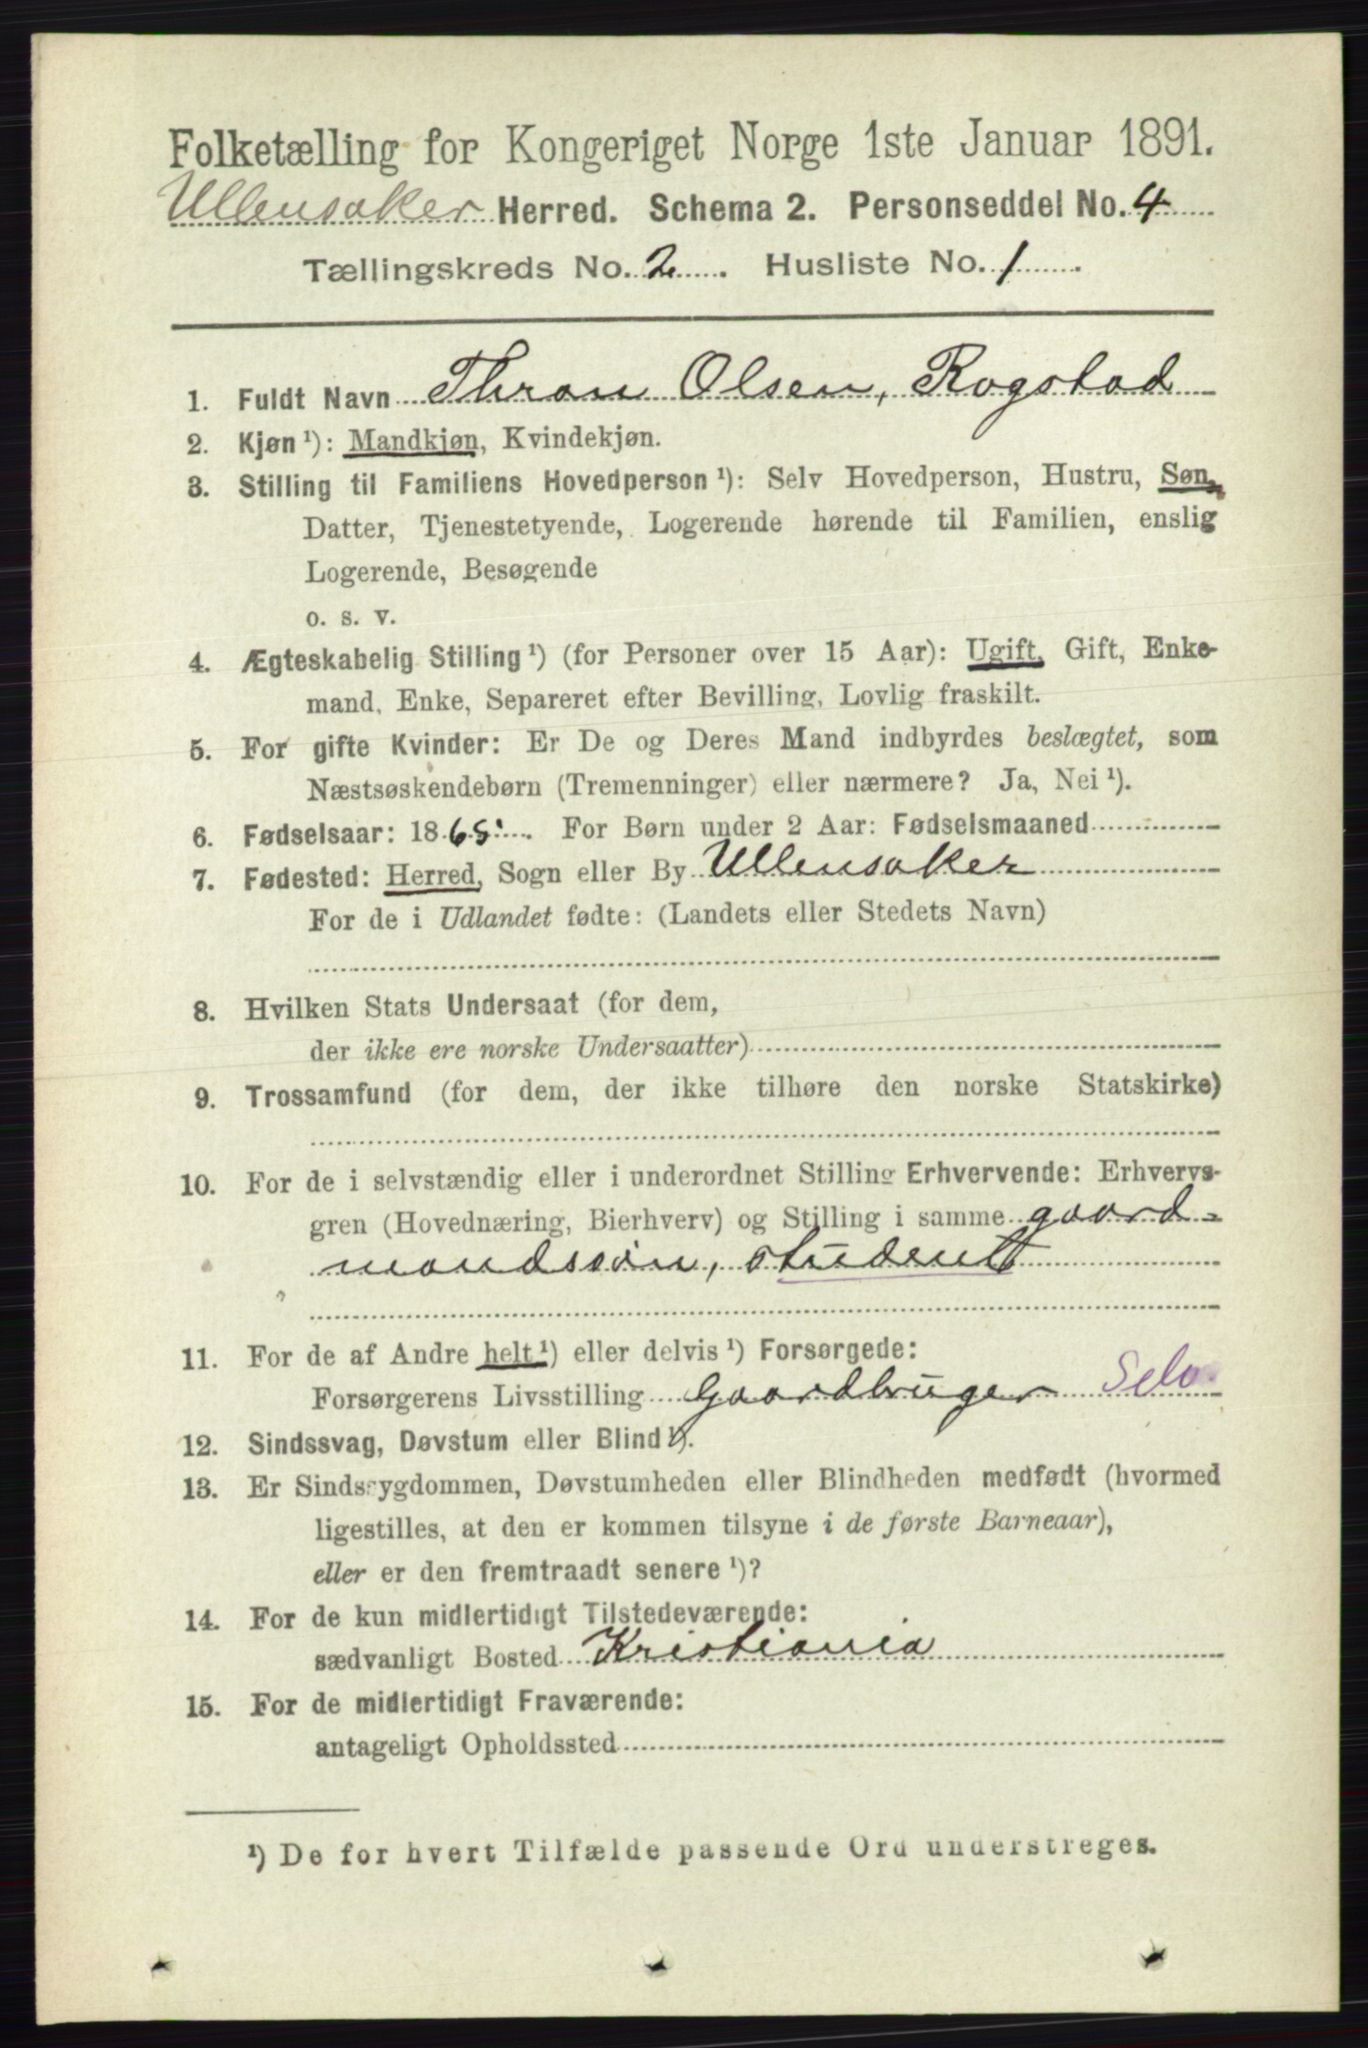 Folketælling for Kongeriget Norge 1ste Januar 1891.
Ullensaker Herred. Schema 2. Personseddel No. 4
Tællingskreds No. 2. Husliste No. 1
1. Fuldt Navn Thron Olsen, Rogstad
2. Kjøn ¹): Mandkjøn, Kvindekjøn.
3. Stilling til Familiens Hovedperson ¹): Selv Hovedperson, Hustru, Søn,
Datter, Tjenestetyende, Logerende hørende til Familien, enslig
Logerende, Besøgende
o. s. v.
4. Ægteskabelig Stilling ¹) (for Personer over 15 Aar): Ugift, Gift, Enke-
mand, Enke, Separeret efter Bevilling, Lovlig fraskilt.
5. For gifte Kvinder: Er De og Deres Mand indbyrdes beslægtet, som
Næstsøskendebørn (Tremenninger) eller nærmere? Ja, Nei ¹).
6. Fødselsaar: 1865. For Børn under 2 Aar: Fødselsmaaned
7. Fødested: Herred, Sogn eller By Ullensaker
For de i Udlandet fødte: (Landets eller Stedets Navn)
8. Hvilken Stats Undersaat (for dem,
der ikke ere norske Undersaatter)
9. Trossamfund (for dem, der ikke tilhøre den norske Statskirke)
10. For de i selvstændig eller i underordnet Stilling Erhvervende: Erhvervs-
gren (Hovednæring, Bierhverv) og Stilling i samme gaard-
mandssøn, student
11. For de af Andre helt ¹) eller delvis ¹) Forsørgede:
Forsørgerens Livsstilling Gaardbruger Selv
12. Sindssvag, Døvstum eller Blind ¹).
13. Er Sindssygdommen, Døvstumheden eller Blindheden medfødt (hvormed
ligestilles, at den er kommen tilsyne i de første Barneaar),
eller er den fremtraadt senere ¹)?
14. For de kun midlertidigt Tilstedeværende:
sædvanligt Bosted Kristiania
15. For de midlertidigt Fraværende:
antageligt Opholdssted
¹) De for hvert Tilfælde passende Ord understreges.